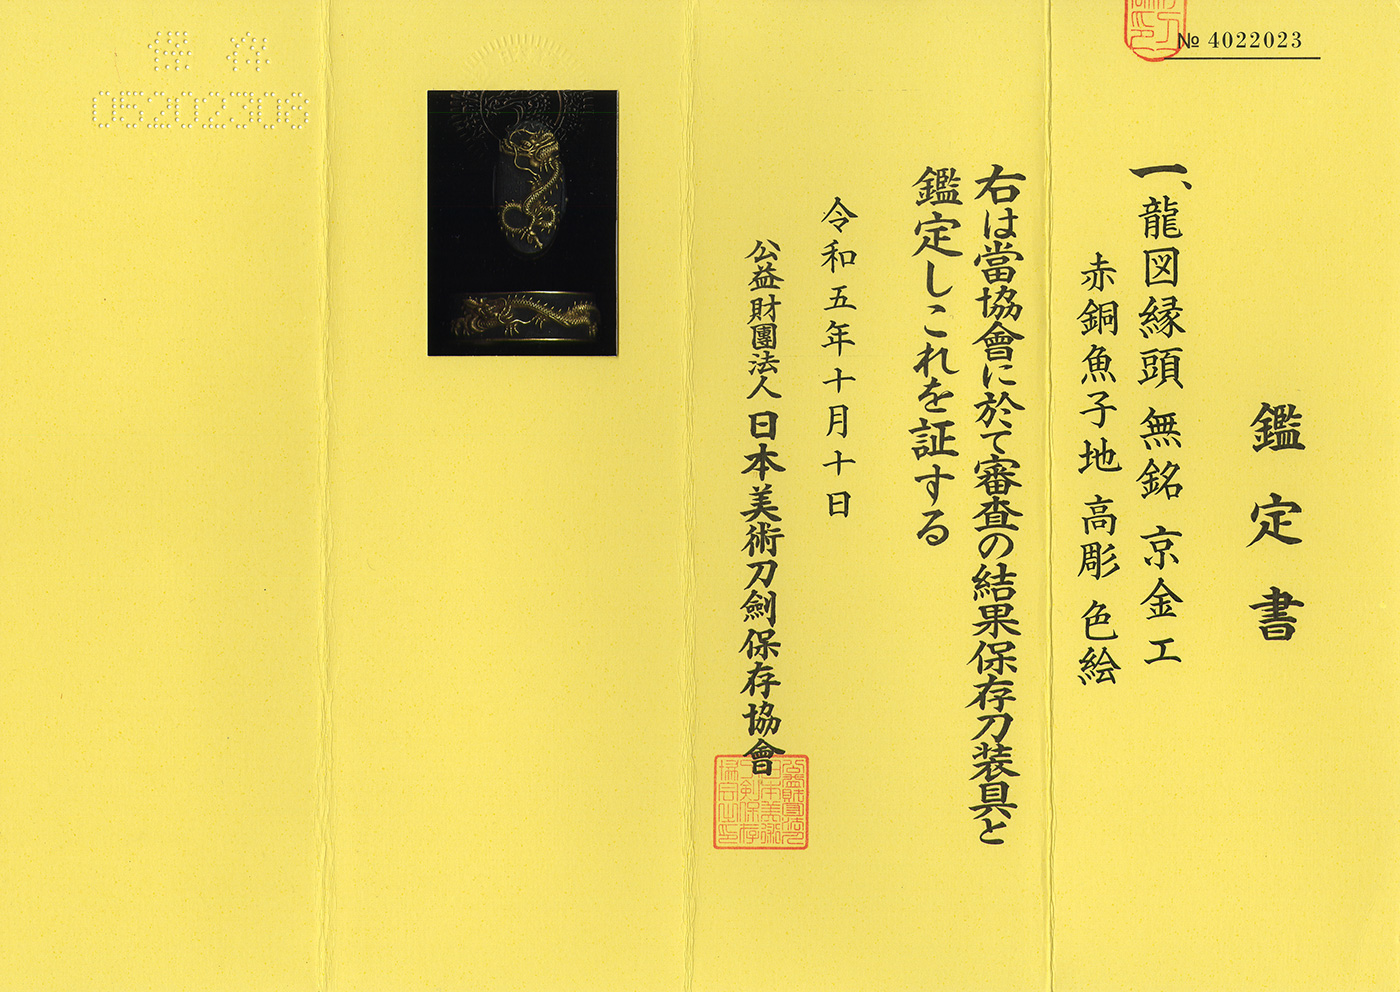 № 4022023
鑑定書
一、龍図縁頭 無銘 京金工
赤銅魚子地 高彫 色絵
右は當協會に於て審査の結果保存刀装具と
鑑定しこれを証する
令和五年十月十日
公益財團法人 日本美術刀劍保存協會
保存
05202308